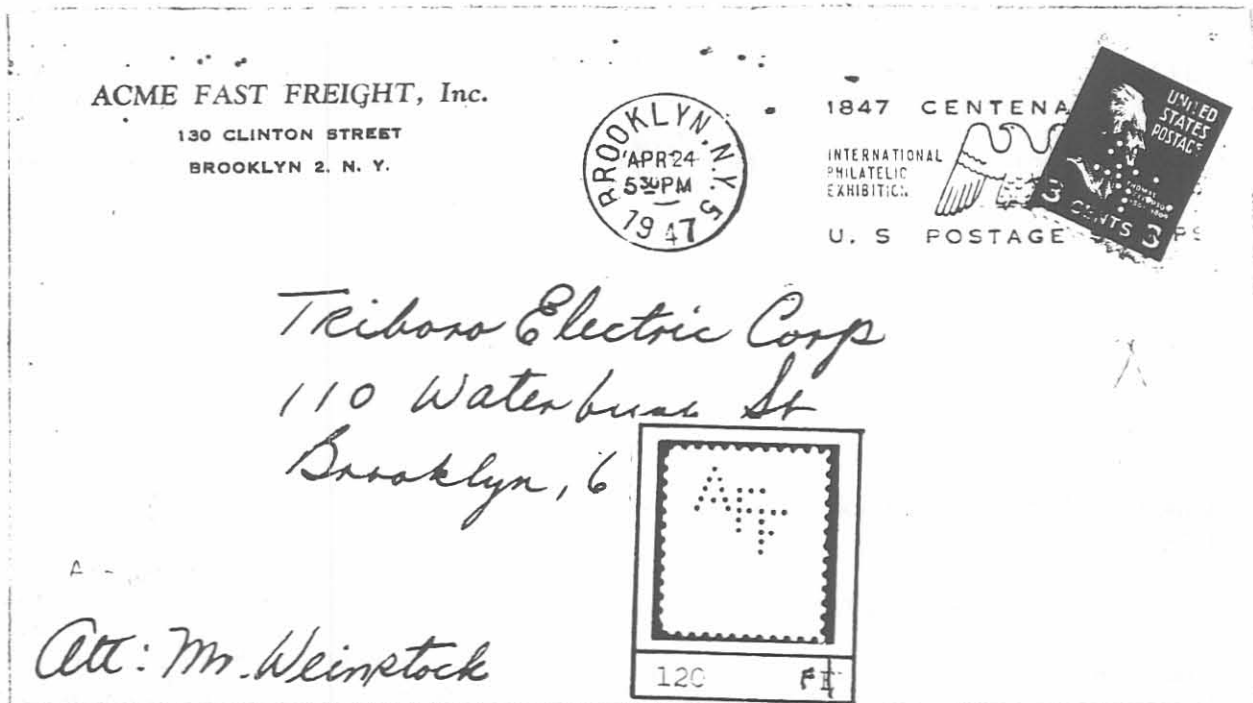 ACME FAST FREIGHT, Inc.
130 CLINTON STREET
BROOKLYN 2. N. Y.
BROOKLYN, N.Y. 5
APR 24
5 30 PM
1947
1847 CENTENA
INTERNATIONAL
PHILATELIC
EXHIBITION
U. S POSTAGE
UNITED
STATES
POSTAGE
THOMAS
3 CENTS 3
Triboro Electric Corp
110 Waterbury St
Brooklyn, 6
AFF
120
Att: Mr. Weinstock